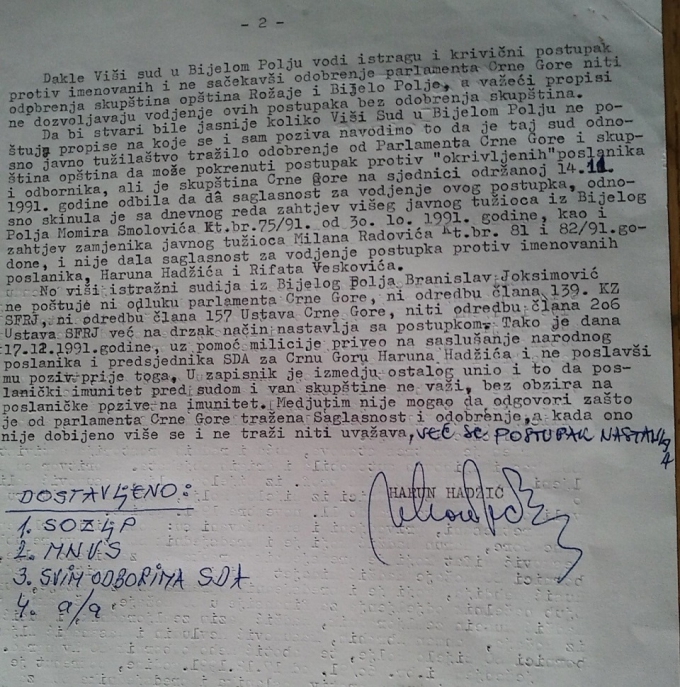 - 2 -
Dakle Viši sud u Bijelom Polju vodi istragu i krivični postupak
protiv imenovanih i ne sačekavši odobrenje parlamenta Crne Gore niti
odobrenja skupština opština Rožaje i Bijelo Polje, a važeći propisi
ne dozvoljavaju vodjenje ovih postupaka bez odobrenja skupština.
Da bi stvari bile jasnije koliko Viši Sud u Bijelom Polju ne po-
štuje propise na koje se i sam poziva navodimo to da je taj sud odno-
sno javno tužilaštvo tražilo odobrenje od Parlamenta Crne Gore i skup-
ština opština da može pokrenuti postupak protiv "okrivljenih"poslanika
i odbornika, ali je skupština Crne Gore na sjednici održanoj 14.11.
1991. godine odbila da dâ saglasnost za vodjenje ovog postupka, odno-
sno skinula je sa dnevnog reda zahtjev višeg javnog tužioca iz Bijelog
Polja Momira Smolovića Kt.br.75/91. od 3o. 1o. 1991. godine, kao i
zahtjev zamjenika javnog tužioca Milana Radovića Kt.br. 81 i 82/91.go-
done, i nije dala saglasnost za vodjenje postupka protiv imenovanih
poslanika, Haruna Hadžića i Rifata Veskovića.
No viši istražni sudija iz Bijelog Polja Branislav Joksimović
ne poštuje ni odluku parlamenta Crne Gore, ni odredbu člana 139. KZ
SFRJ, ni odredbu člana 157 Ustava Crne Gore, niti odredbu člana 2o6
Ustava SFRJ već na drzak način nastavlja sa postupkom. Tako je dana
17.12.1991.godine, uz pomoć milicije priveo na saslušanje narodnog
poslanika i predsjednika SDA za Crnu Goru Haruna Hadžića i ne poslavši
mu poziv prije toga. U zapisnik je izmedju ostalog unio i to da pos-
lanički imunitet pred sudom i van skupštine ne važi, bez obzira na
poslaničke ppzive na imunitet. Medjutim nije mogao da odgovori zašto
je od parlamenta Crne Gore tražena Saglasnost i odobrenje,a kada ono
nije dobijeno više se i ne traži niti uvažava, VEĆ SE POSTUPAK NASTAVLJA
HARUN HADŽIĆ
DOSTAVLJENO:
1. SOZLJP
2. MNVS
3. SVIM ODBORIMA SDA
4. a/a